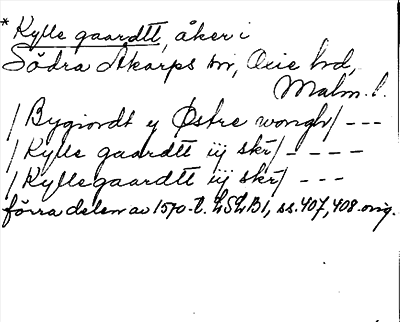 * Kylle gaardtt, åker i
Södra Åkarps sn, Oxie hd,
Malm. l.
/ Bygiordt ij Østre wongh / ---
/ Kylle gaardtt iij skr / ----
/ Kyllegaardtt iij skr / ---
förra delen av 1570-t. LSLB1, ss. 407, 408. orig.